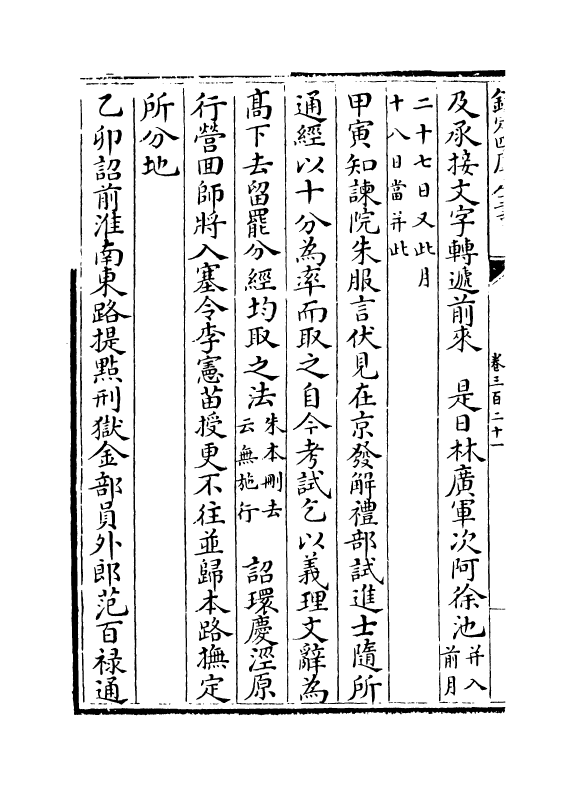 欽定四庫全書
卷三百二十一
及承接文字轉遞前來　是日林廣軍次阿徐池并入前月
二十七日又此月十八日當并此
甲寅知諫院朱服言伏見在京發解禮部試進士隨所
通經以十分為率而取之自今考試乞以義理文辭為
髙下去留罷分經均取之法朱本刪去云無施行　詔環慶涇原
行營回師將入塞令李憲苗授更不往並歸本路撫定
所分地
乙卯詔前淮南東路提點刑獄金部員外郎范百禄通